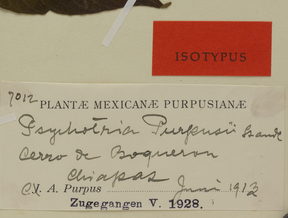 ISOTYPUS
7012
PLANTÆ MEXICANÆ PURPUSIANÆ
Psychotria Purpusii Standl
Cerro de Boqueron
Chiapas
C. A. Purpus Juni 1913
Zugegangen V. 1928.